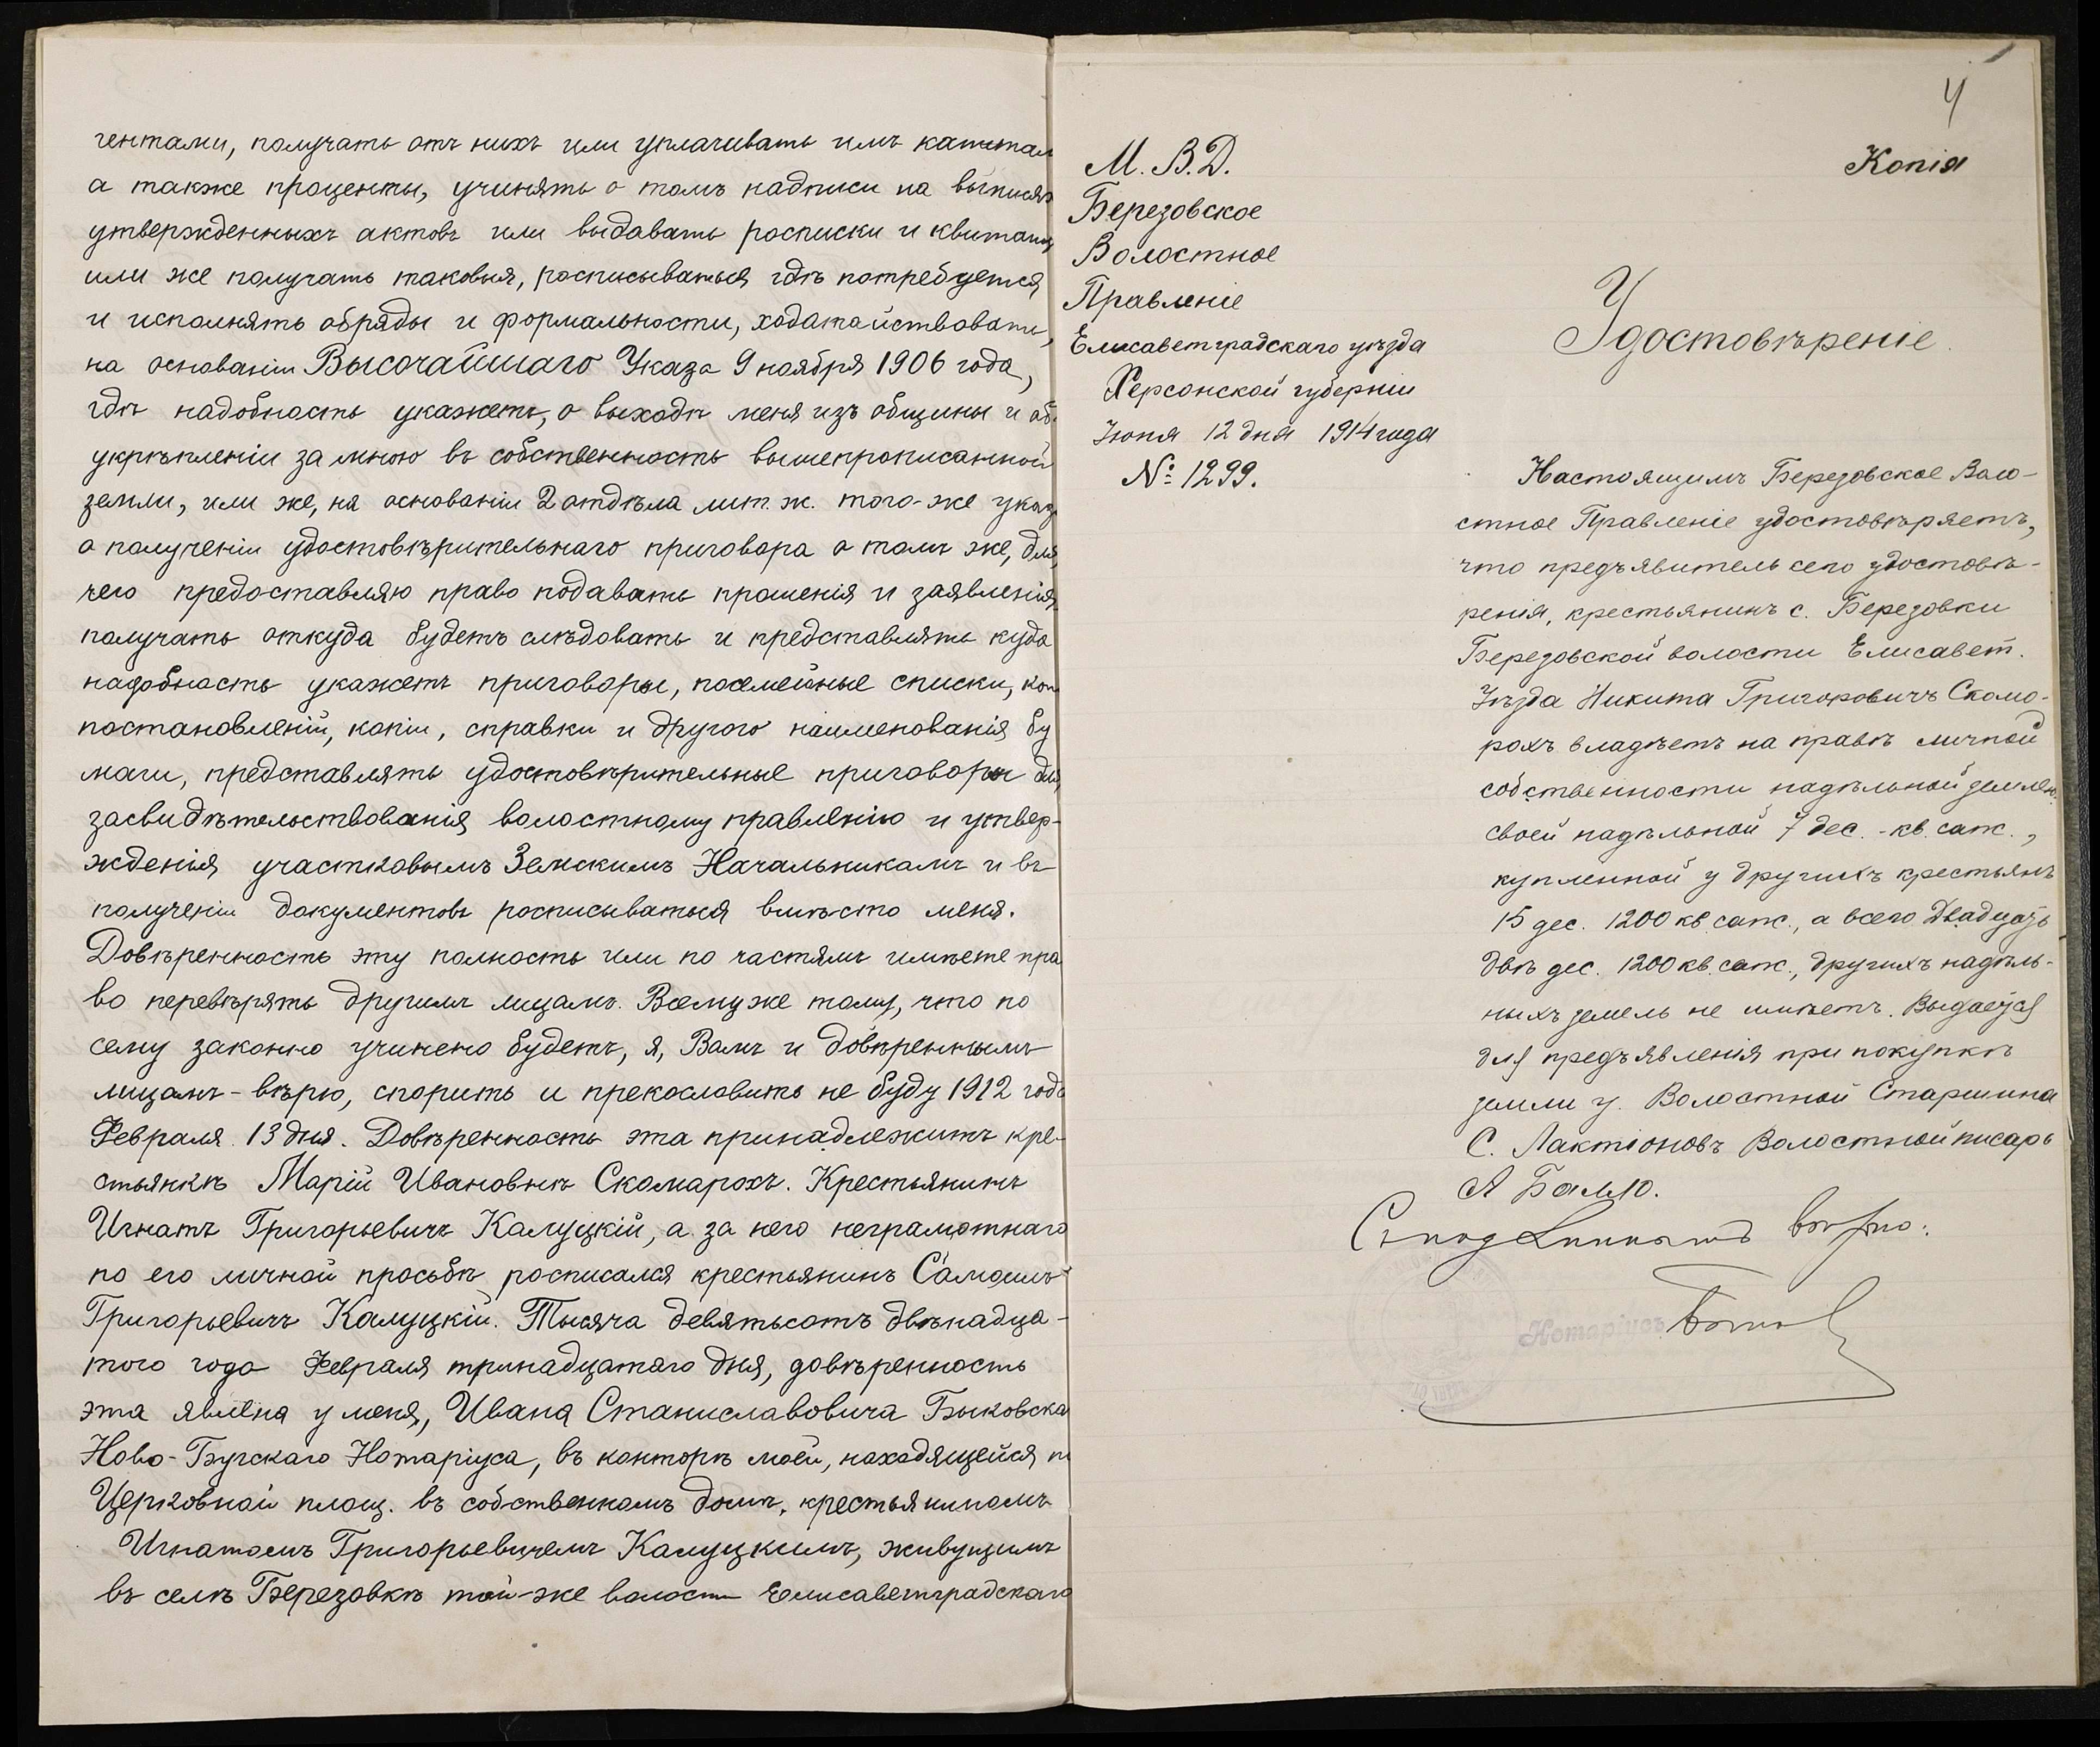 гентами, получать отъ нихъ или уплачивать имъ капитал
а также проценты, учинять о томъ надписи на выписях
утвержденныхъ актовъ или выдавать росписки и квитанц
или же получать таковыя, росписываться гдѣ потребуется
и исполнять обряды и формальности, ходатайствовать,
на основаніи Высочайшаго Указа 9 ноября 1906 года,
гдѣ надобность укажетъ, о выходѣ меня изъ общины и об
укрѣпленіи за мною въ собственность вышепрописанной
земли, или же, на основаніи 2 отдѣла лит. ж. того-же указ
о полученіи удостовѣрительнаго приговора о томъ же, для
чего предоставляю право подавать прошенія и заявленія,
получать откуда будетъ слѣдовать и представлять куда
надобность укажетъ приговоры, посемейные списки, коп
постановленій, копіи, справки и другого наименованія бу
маги, представлять удостовѣрительные приговоры для
засвидѣтельствованія волостному правленію и утвер-
жденія участковымъ Земскимъ Начальникамъ и въ
полученіи документовъ росписываться вмѣсто меня.
Довѣренность эту полность или по частямъ имѣете пра
во перевѣрять другимъ лицамъ. Всему же тому, что по
сему законно учинено будетъ, я, Вамъ и довѣреннымъ
лицамъ - вѣрю, спорить и прекословить не буду 1912 года
Февраля 13 дня. Довѣренность эта принадлежитъ кре-
стьянкѣ Марій Ивановнѣ Скомарохъ. Крестьянинъ
Игнатъ Григорьевичъ Калуцкій, а за него неграмотнаго
по его личной просьбѣ росписался крестьянинъ Самоилъ
Григорьевичъ Калуцкій. Тысяча девятьсотъ двѣнадца-
того года Февраля тринадцатаго дня, довѣренность
эта явлена у меня, Ивана Станиславовича Быковска
Ново-Бугскаго Нотаріуса, въ конторѣ моей, находящейся н
Церковной площ. въ собственномъ домѣ, крестьяниномъ
Игнатомъ Григорьевичемъ Калуцкимъ, живущимъ
въ селѣ Березовкѣ той-же волости Елисаветградскаго
4
Копія
М. В. Д.
Березовское
Волостное
Правленіе
Елисаветградскаго уѣзда
Херсонской губерніи
Іюня 12 дня 1914 года
№ 1299.
Удостовѣреніе.
Настоящимъ Березовское Воло-
стное Правленіе удостовѣряетъ,
что предъявитель сего удостовѣ-
ренія, крестьянинъ с. Березовки
Березовской волости Елисавет.
Уѣзда Никита Григоровичъ Скомо-
рохъ владѣетъ на правѣ личной
собственности надѣльной землею:
своей надѣльной 7 дес. - кв. саж.,
купленной у другихъ крестьянъ
15 дес. 1200 кв. саж., а всего двадцать
двѣ дес. 1200 кв. саж., другихъ надѣль-
ныхъ земель не имѣетъ. Выдается
для предъявленія при покупкѣ
земли у. Волостной Старшина
С. Лактіоновъ Волостной писарь
А Балло.
Съ подлиннымъ вѣрно:
Нотаріусъ